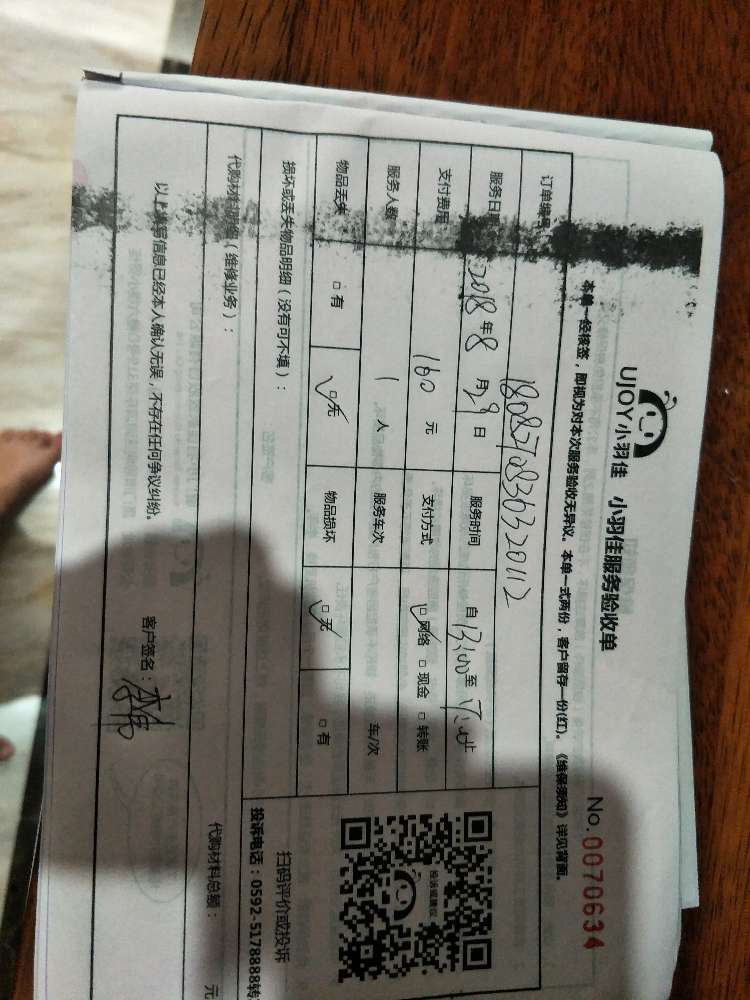 UJOY小羽佳 小羽佳服务验收单
No.0070634
本单一经核签，即视为对本次服务验收无异议。本单一式两份，客户留存一份(红)。《维保须知》详见背面。
订单编号
服务日期 2018年8月29日 服务时间 自13:00至 止
支付费用 160元 支付方式 ☑网络 □现金 □转账
服务人数 1人 服务车次 车/次
物品丢失 □有 ☑无 物品损坏 ☑无 □有
损坏或丢失物品明细（没有可不填）：
投诉或建议
扫码评价或投诉
投诉电话：0592-5178888转
代购材料明细（维修业务）：
代购材料总额： 元
以上填写信息已经本人确认无误，不存在任何争议纠纷。
客户签名：